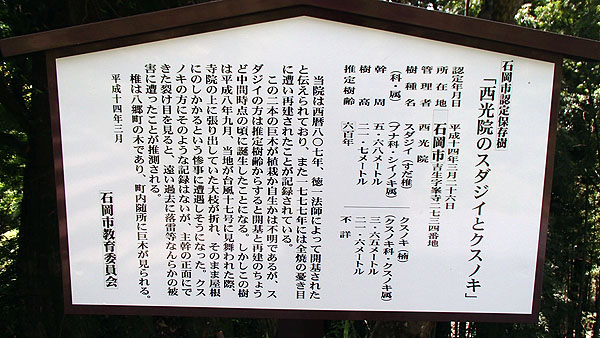 石岡市認定保存樹
「西光院のスダジイとクスノキ」
認定年月日　平成十四年三月二十六日
所在地　石岡市吉生字峯寺二七三四番地
管理者　西光院
樹種名　スダジイ（すだ椎）　クスノキ（楠）
（科・属）　（ブナ科・シイノキ属）　（クスノキ科・クスノキ属）
幹周　五・六八メートル　三・六五メートル
樹高　二一・七メートル　二一・六メートル
推定樹齢　六百年　不詳
当院は西暦八〇七年、徳一法師によって開基された
と伝えられており、また一七七七年には全焼の憂き目
に遭い再建されたことが記録されている。
この二本の巨木が植栽か自生かは不明であるが、ス
ダジイの方は推定樹齢からすると開基と再建のちょう
ど中間時点の頃に誕生したことになる。しかしこの樹
は平成八年九月、当地が台風十七号に見舞われた際、
寺院の上に張り出していた大枝が折れ、そのまま屋根
にのしかかるという惨事に遭遇しそうになった。クス
ノキの方はそのような記録はないが、主幹の正面にで
きた裂け目を見ると、遠い過去に落雷等なんらかの被
害に遭ったことが推測される。
椎は八郷町の木であり、町内随所に巨木が見られる。
平成十四年三月
石岡市教育委員会